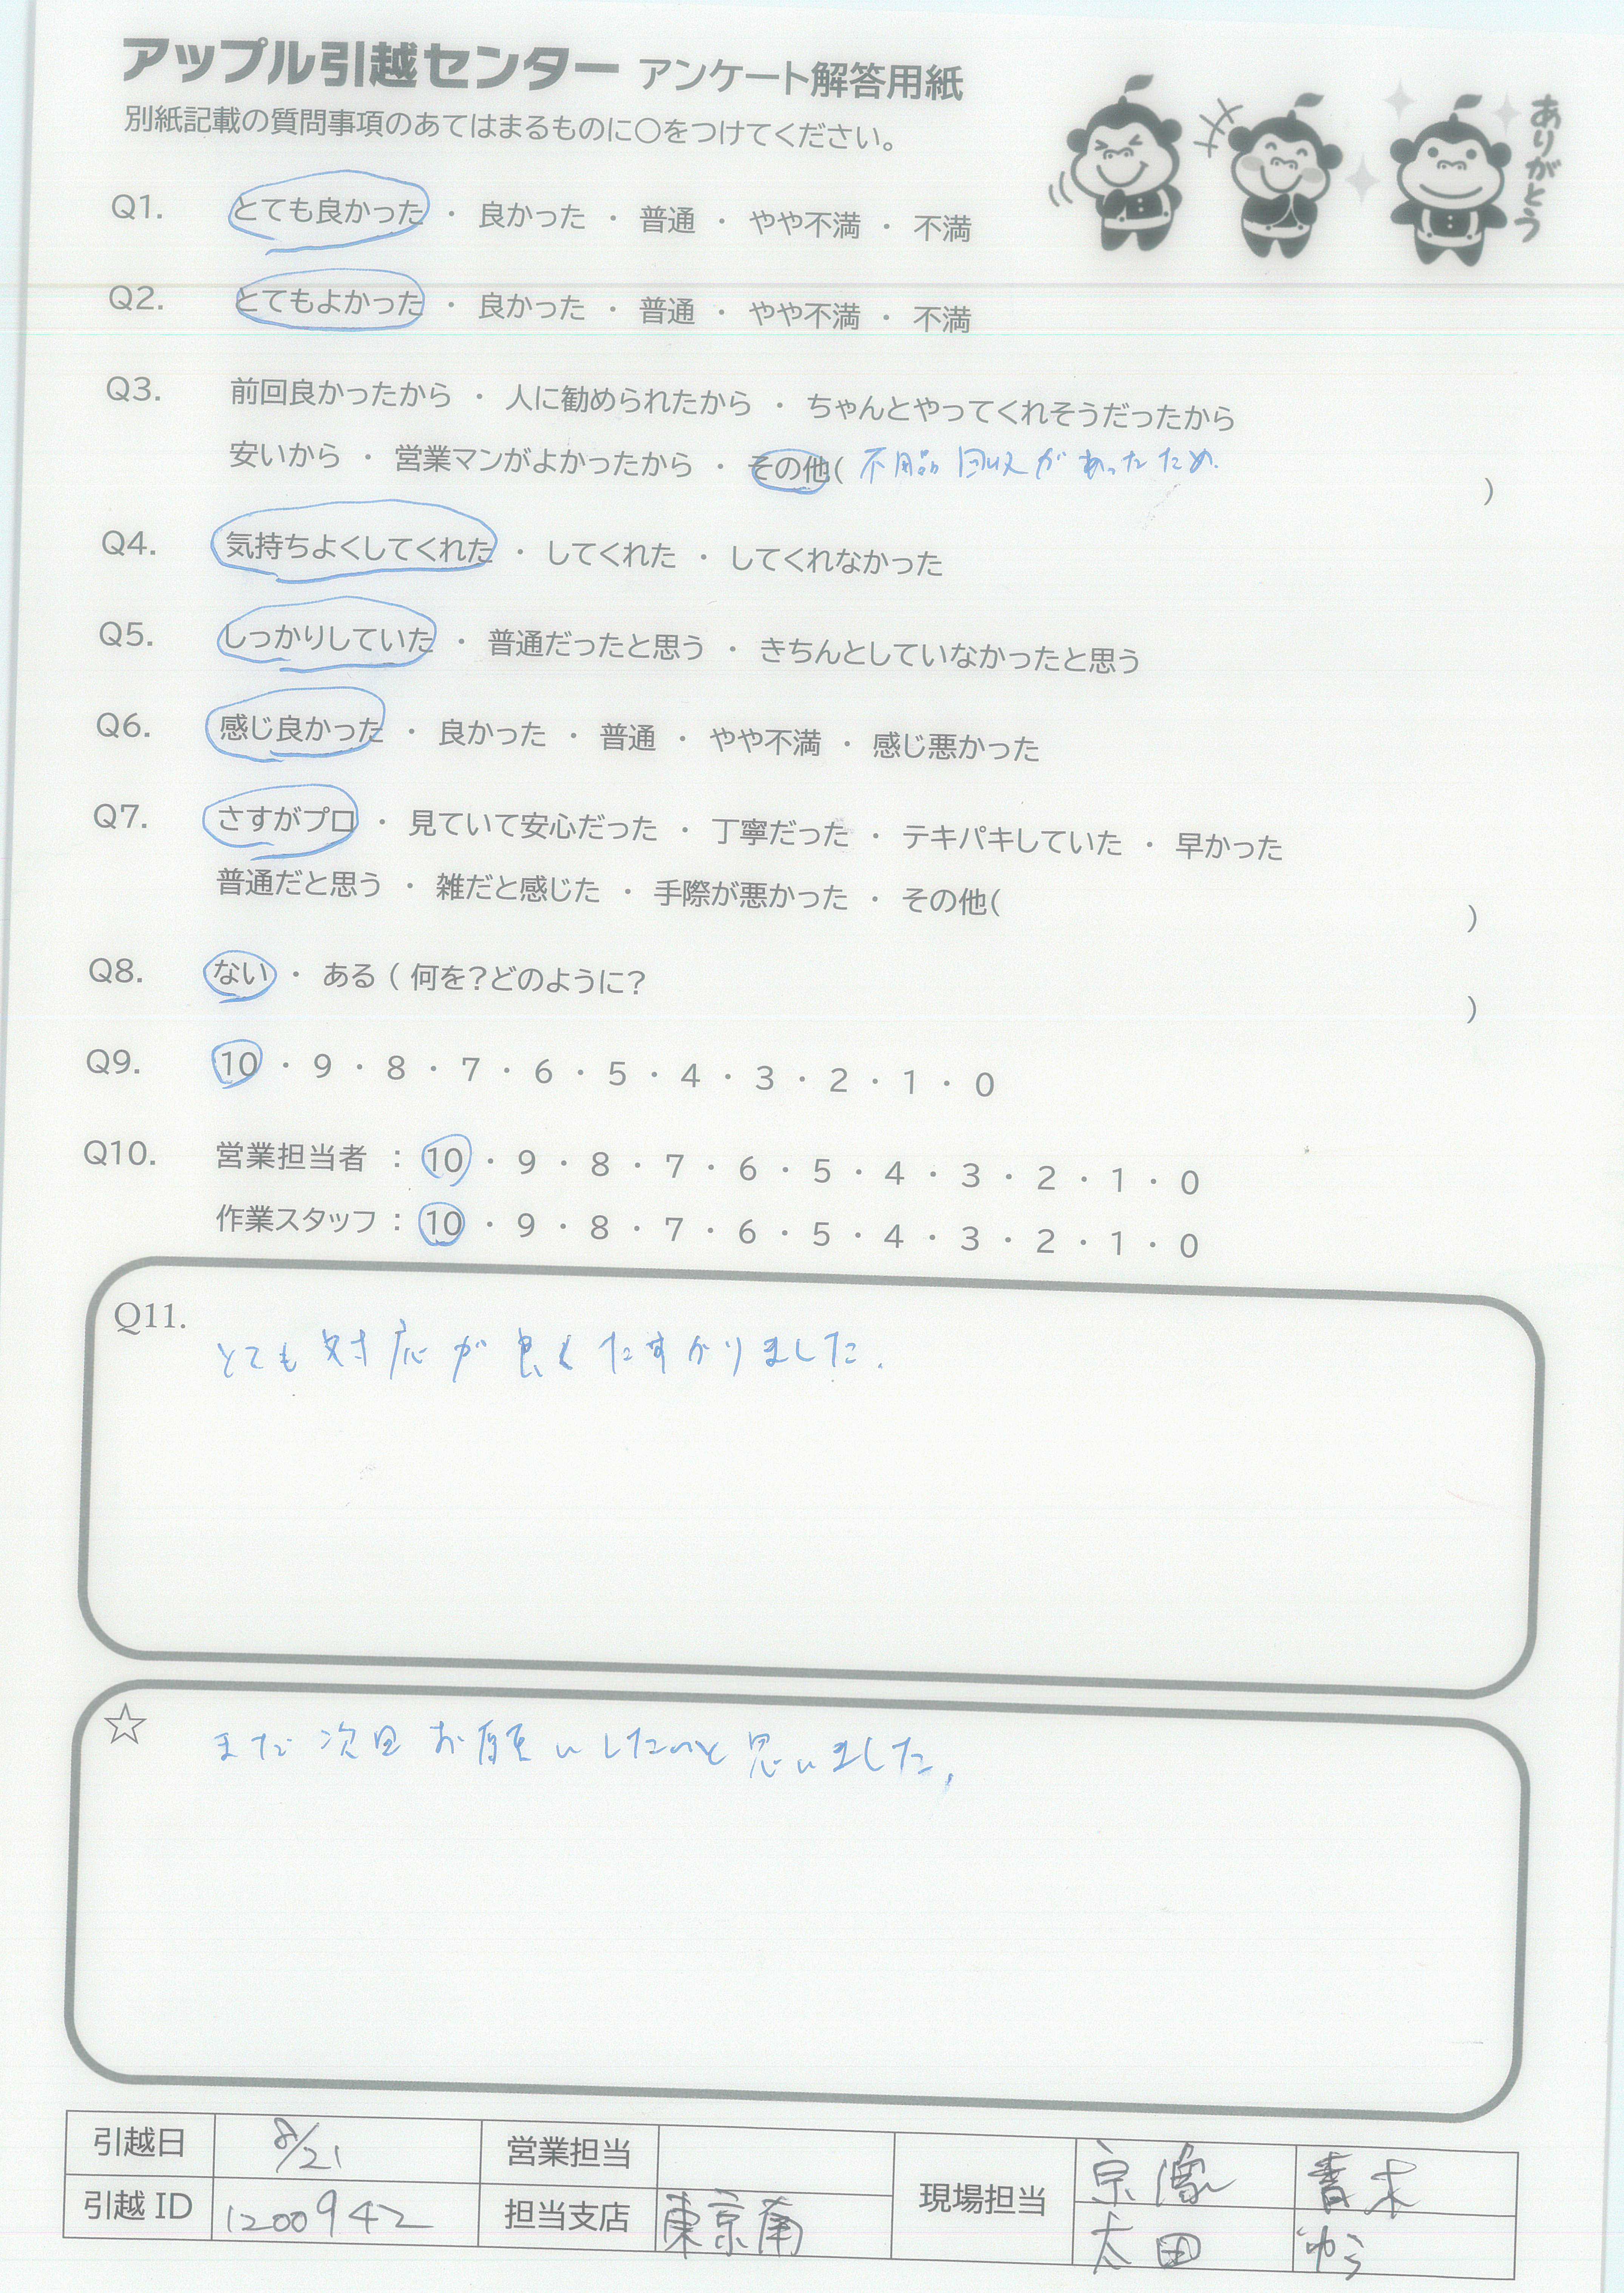 アップル引越センター アンケート解答用紙
別紙記載の質問事項のあてはまるものに○をつけてください。
ありがとう
Q1. とても良かった ・ 良かった ・ 普通 ・ やや不満 ・ 不満
Q2. とてもよかった ・ 良かった ・ 普通 ・ やや不満 ・ 不満
Q3. 前回良かったから ・ 人に勧められたから ・ ちゃんとやってくれそうだったから
安いから ・ 営業マンがよかったから ・ その他( 不用品回収があったため. )
Q4. 気持ちよくしてくれた ・ してくれた ・ してくれなかった
Q5. しっかりしていた ・ 普通だったと思う ・ きちんとしていなかったと思う
Q6. 感じ良かった ・ 良かった ・ 普通 ・ やや不満 ・ 感じ悪かった
Q7. さすがプロ ・ 見ていて安心だった ・ 丁寧だった ・ テキパキしていた ・ 早かった
普通だと思う ・ 雑だと感じた ・ 手際が悪かった ・ その他( )
Q8. ない ・ ある ( 何を?どのように? )
Q9. 10 ・ 9 ・ 8 ・ 7 ・ 6 ・ 5 ・ 4 ・ 3 ・ 2 ・ 1 ・ 0
Q10. 営業担当者 : 10 ・ 9 ・ 8 ・ 7 ・ 6 ・ 5 ・ 4 ・ 3 ・ 2 ・ 1 ・ 0
作業スタッフ : 10 ・ 9 ・ 8 ・ 7 ・ 6 ・ 5 ・ 4 ・ 3 ・ 2 ・ 1 ・ 0
Q11.
とても対応が良くたすかりました.
☆ また次回お願いしたいと思いました,
引越日 8/21 営業担当 現場担当 青木
引越 ID 1200942 担当支店 東京南 太田